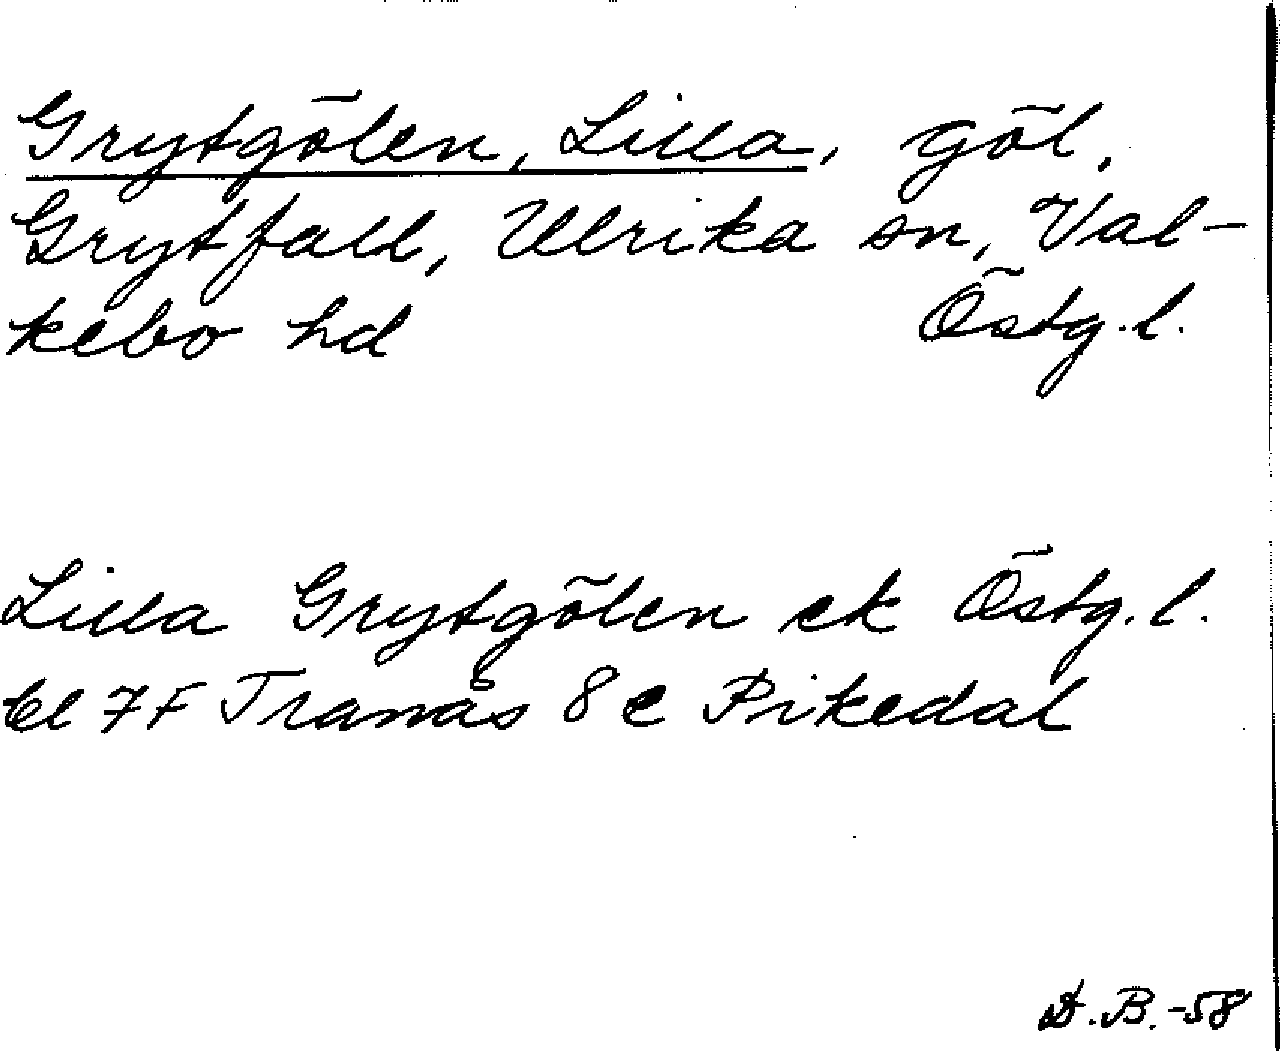 Grytgölen, Lilla, göl,
Grytfall, Ulrika sn, Val-
kebo hd Östg.l.
Lilla Grytgölen ek Östg.l.
bl 7F Tranås 8e Pikedal
D.B.-58